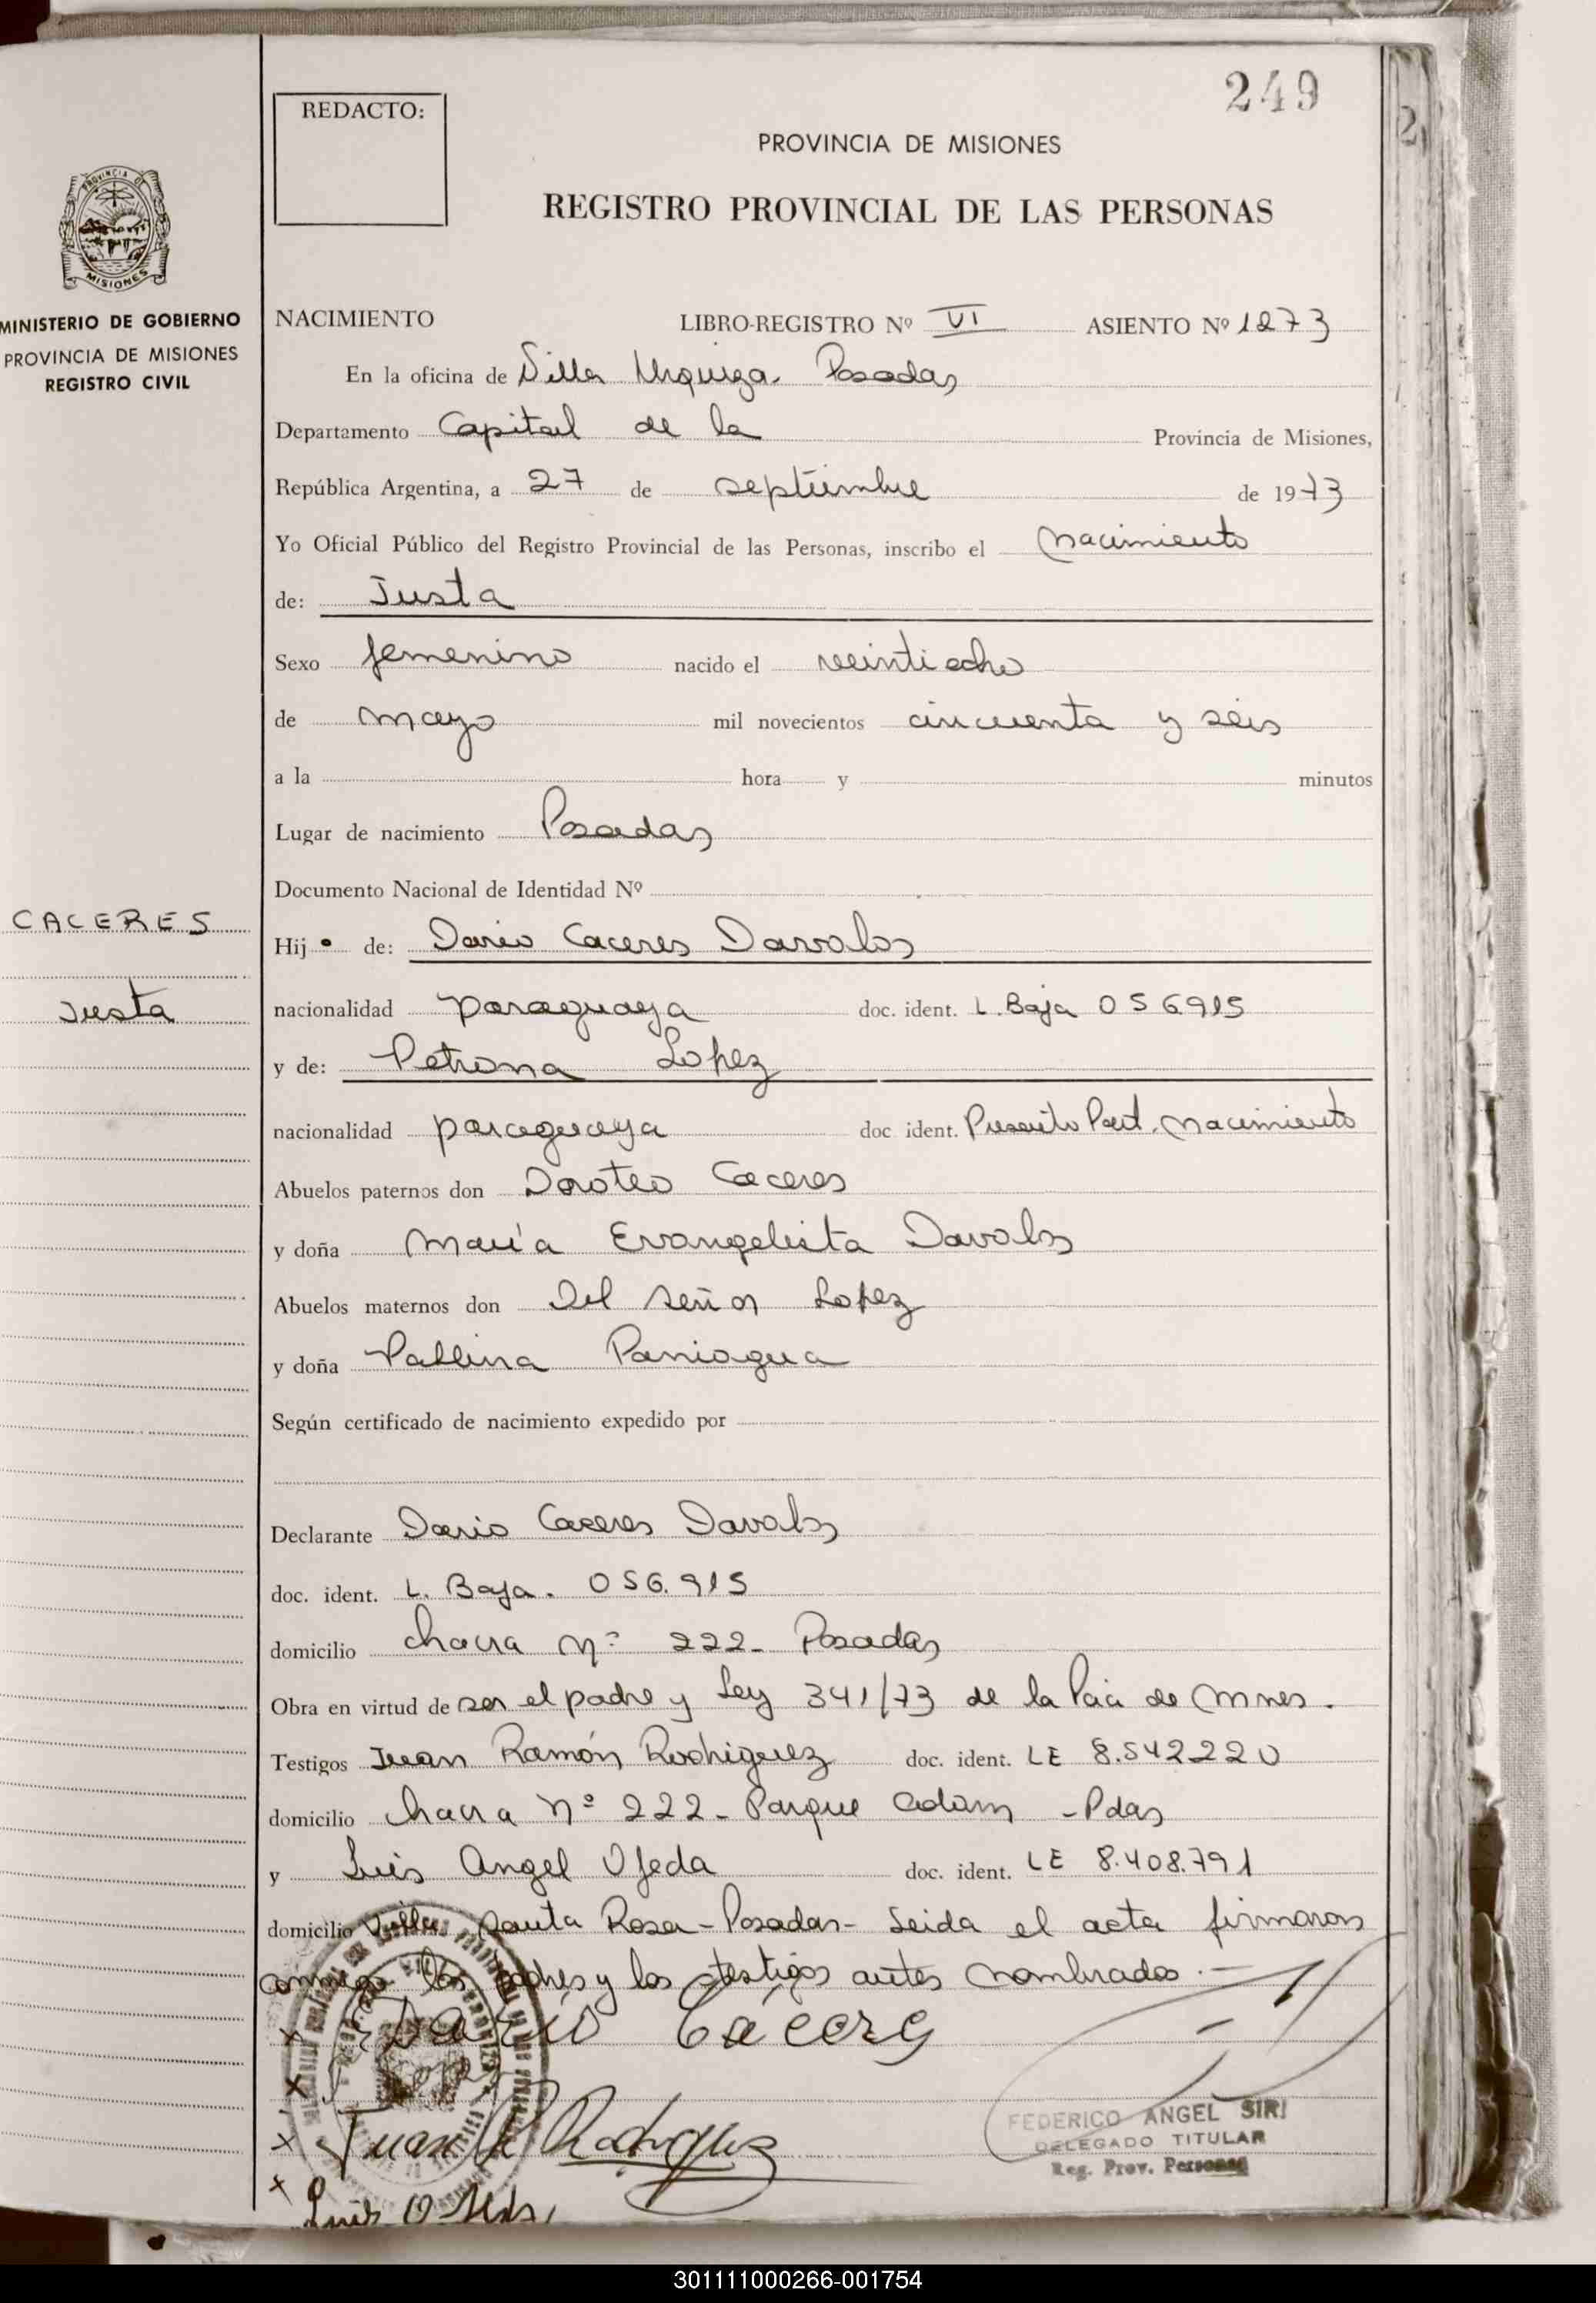 249
REDACTO:
PROVINCIA DE MISIONES
REGISTRO PROVINCIAL DE LAS PERSONAS
PROVINCIA DE
MISIONES
MINISTERIO DE GOBIERNO
PROVINCIA DE MISIONES
REGISTRO CIVIL
NACIMIENTO LIBRO-REGISTRO Nº VI ASIENTO Nº 1273
En la oficina de Villa Urquiza. Posadas
Departamento Capital de la Provincia de Misiones,
República Argentina, a 27 de septiembre de 1973
Yo Oficial Público del Registro Provincial de las Personas, inscribo el nacimiento
de: Justa
Sexo femenino nacido el veintiocho
de mayo mil novecientos cincuenta y seis
a la hora y minutos
Lugar de nacimiento Posadas
Documento Nacional de Identidad Nº
CACERES
Justa
Hij de: Dario Caceres Davalos
nacionalidad paraguaya doc. ident. L. Baja 056915
y de: Petrona Lopez
nacionalidad paraguaya doc ident. Presento Part. nacimiento
Abuelos paternos don Doroteo Caceres
y doña María Evangelista Davalos
Abuelos maternos don Del Señor Lopez
y doña Paniagua
Según certificado de nacimiento expedido por
Declarante Dario Caceres Davalos
doc. ident. L. Baja. 056.915
domicilio chacra nº 222- Posadas
Obra en virtud de ser el padre y Ley 341/73 de la Pcia de Mnes.
Testigos Juan Ramón Rodriguez doc. ident. LE 8.542220
domicilio chacra nº 222- Parque Adam - Pdas
y Luis Angel Ojeda doc. ident. LE 8.408.791
domicilio Villa Santa Rosa - Posadas - Leida el acta firmaron
conmigo los padres y los testigos antes nombrados.-
x Dario Cácere
x
x Juan R Rodriguez
x Luis O
FEDERICO ANGEL SIRI
DELEGADO TITULAR
Reg. Prov. Personas
301111000266-001754